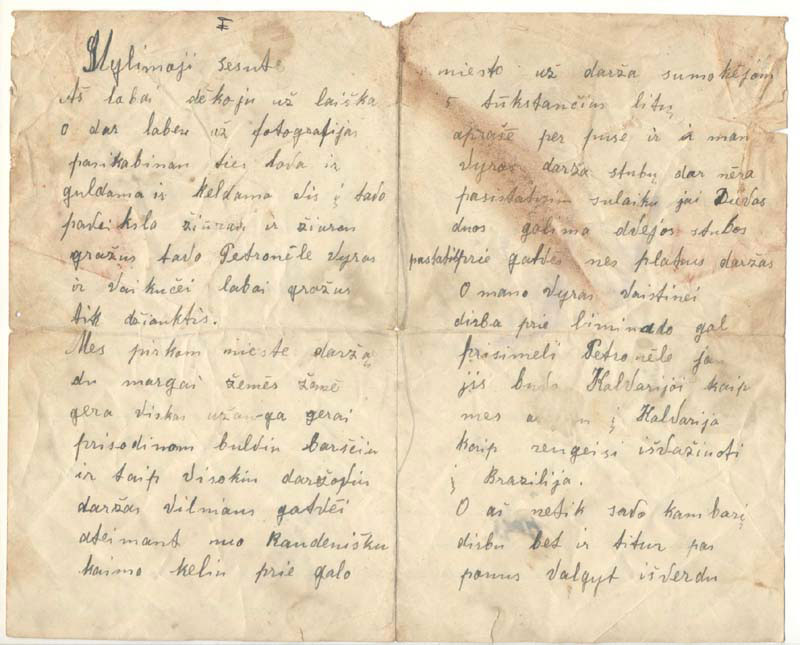 I
Mylimoji sesute
Aš labai dėkoju už laiška
O dar labeu uz fotografijas
pasikabinau ties lova ir
guldama ir keldama vis į tavo
paveikslo žiūrau ir žiurau
gražus tavo Petronėle vyras
ir vaikučei labai gražus
tik džiauktis.
Mes pirkom mieste daržą
du margai žemės žemė
gera viskas užauga gerai
prisodinom bulbiu barščiu
ir taip visokiu daržoviu
daržas Vilniaus gatvėi
ateinant nuo Raudeniškiu
kaimo keliu prie galo
miesto už darža sumokėjom
5 tūkstančius litų
apraše per puse ir a man
vyras darža stubų dar nėra
pasistatem sulaiku jai Dievas
duos galima dvejos stubos
pastatit prie gatvės nes platus daržas
O mano vyras vaistinei
dirba prie limonado gal
prisimeli Petronėle ja
jis buvo Kalvarijoi kaip
mes į Kalvarija
kaip rengeisi išvažiuoti
į Brazilija.
O aš netik savo kambarį
dirbu bet ir titur pas
ponus valgyt išverdu